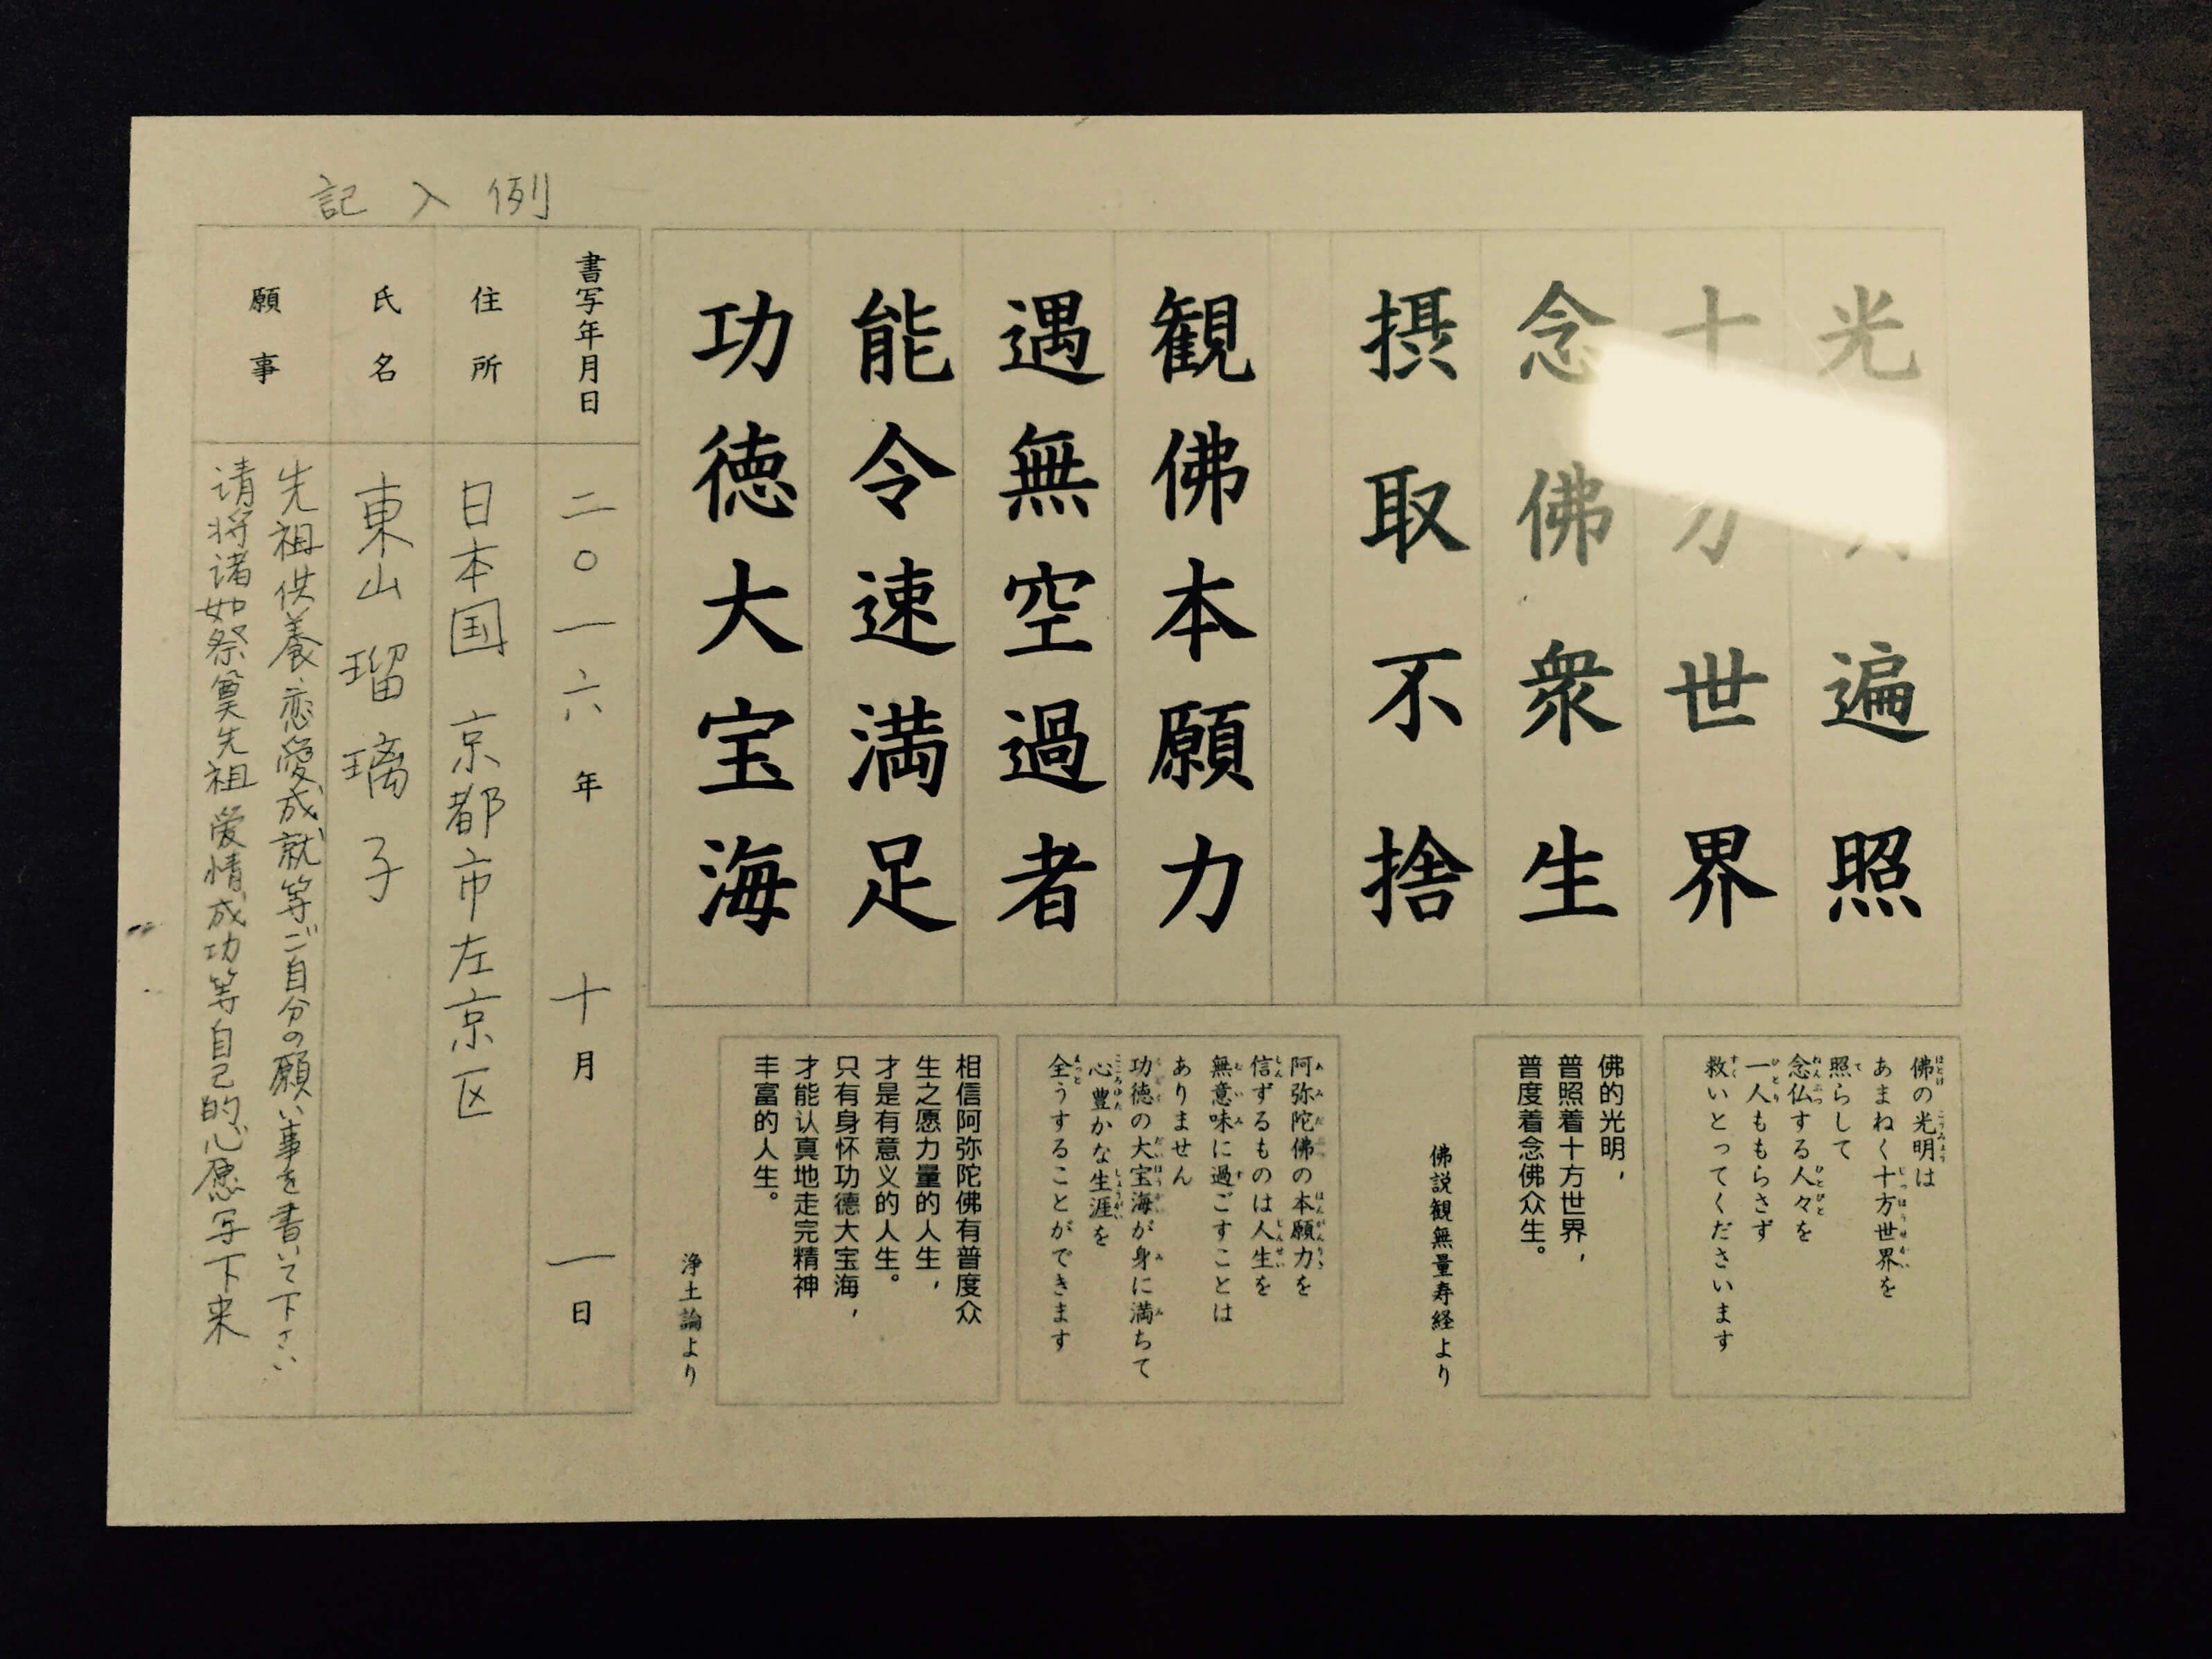 記入例
光遍照
十方世界
念佛衆生
摂取不捨
観佛本願力
遇無空過者
能令速満足
功徳大宝海
佛の光明は
あまねく十方世界を
照らして
念仏する人々を
一人ももらさず
救いとってくださいます
佛的光明，
普照着十方世界，
普度着念佛众生。
佛説観無量寿経より
阿弥陀佛の本願力を
信ずるものは人生を
無意味に過ごすことは
ありません
功徳の大宝海が身に満ちて
心豊かな生涯を
全うすることができます
相信阿弥陀佛有普度众
生之愿力量的人生，
才是有意义的人生。
只有身怀功德大宝海，
才能认真地走完精神
丰富的人生。
浄土論より
書写年月日
二〇一六年 十月 一日
住所
日本国 京都市左京区
氏名
東山 瑠璃子
願事
先祖供養、恋愛成就等ご自分の願い事を書いて下さい
请将诸如祭奠先祖 爱情成功等自己的心愿写下来